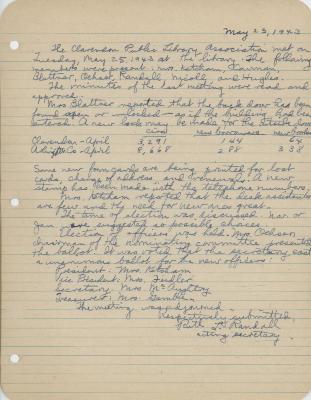 May 25, 1943
The Clarendon Public Library Association met on
Tuesday, May 25, 1943 at the library. The following
members were present: Mrs. Ketcham,
Blattner, Randall, Nicoll, and Hughes.
The minutes of the last meeting were read and
approved.
Mrs. Blattner reported that the back door has been
found open or unlocked – as if the building had been
entered. A new lock may be made for the outside door
circ. new borrowers new books
Clarendon - April 3,291 144 64
Co - April 8,668 288 338
Some new forms are being printed for lost
cards, change of address and renewals. A new
stamp has been made with the telephone numbers.
Mrs. Ketcham reported that the desk assistants
are few and the need for new ones great.
The time of election was discussed. Nov. or
Jan. are suggested as possible choices.
Election of officers was held. Mrs.
chairman of the nominating committee presented
the ballot. It was voted that the secretary cast
a unanimous ballot for the new officers:
President: Mrs. Ketcham
Vice President: Mrs. Fidler
Secretary: Mrs.
Treasurer: Mrs. Gamble
The meeting was adjourned.
Respectfully submitted,
Ruth Randall
acting secretary.